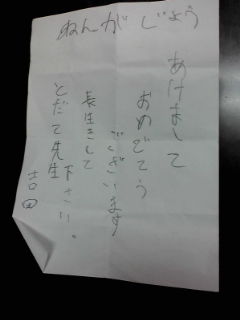 ねんがじょう
あけまして
おめでとう
ございます
長生きして
下さい。
とだて先生
吉田